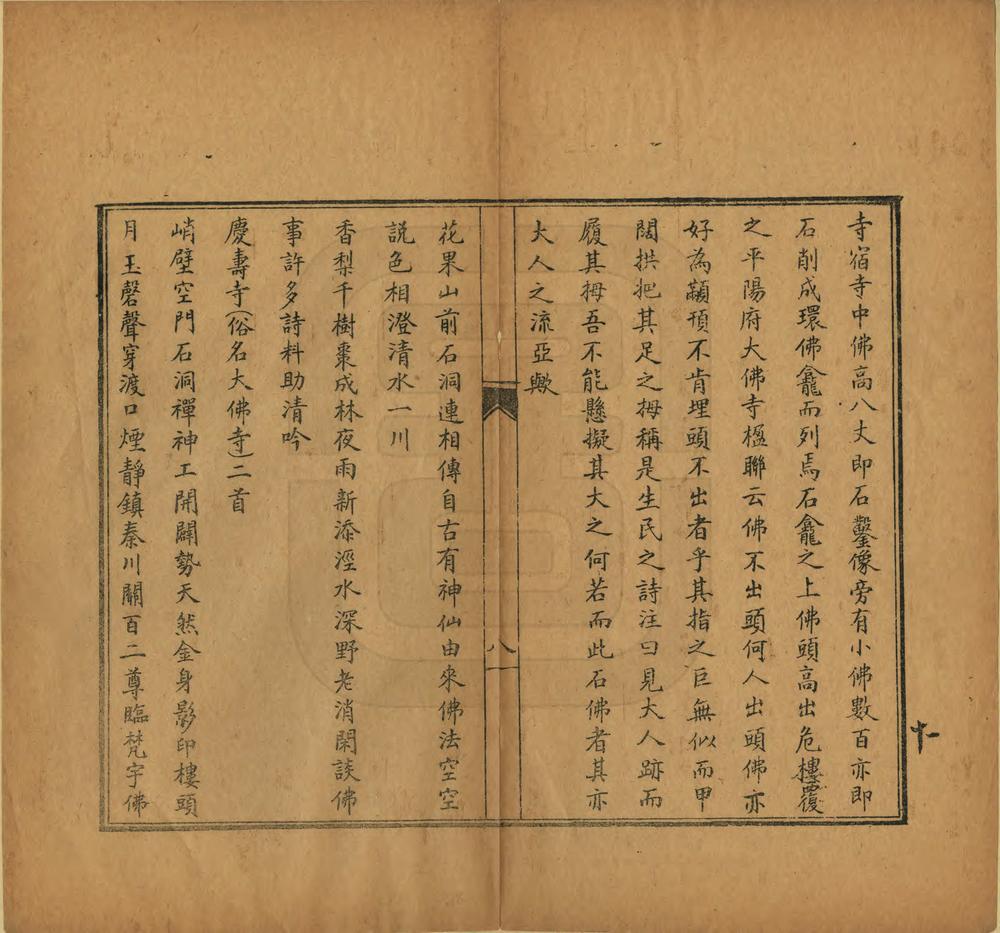 寺宿寺中佛高八丈即石鑿像旁有小佛數百亦即
石削成環佛龕而列焉石龕之上佛頭高出危樓覆
之平陽府大佛寺楹聯云佛不出頭何人出頭佛亦
好為顢頇不肯埋頭不出者乎其指之巨無似而甲
闊拱把其足之拇稱是生民之詩注曰見大人跡而
履其拇吾不能懸擬其大之何若而此石佛者其亦
大人之流亞歟
八
花果山前石洞連相傳自古有神仙由來佛法空空
說色相澄清水一川
香梨千樹棗成林夜雨新添涇水深野老消閑談佛
事許多詩料助清吟
慶壽寺(俗名大佛寺)二首
峭壁空門石洞禪神工開闢勢天然金身影印樓頭
月玉磬聲穿渡口煙靜鎮秦川關百二尊臨梵宇佛